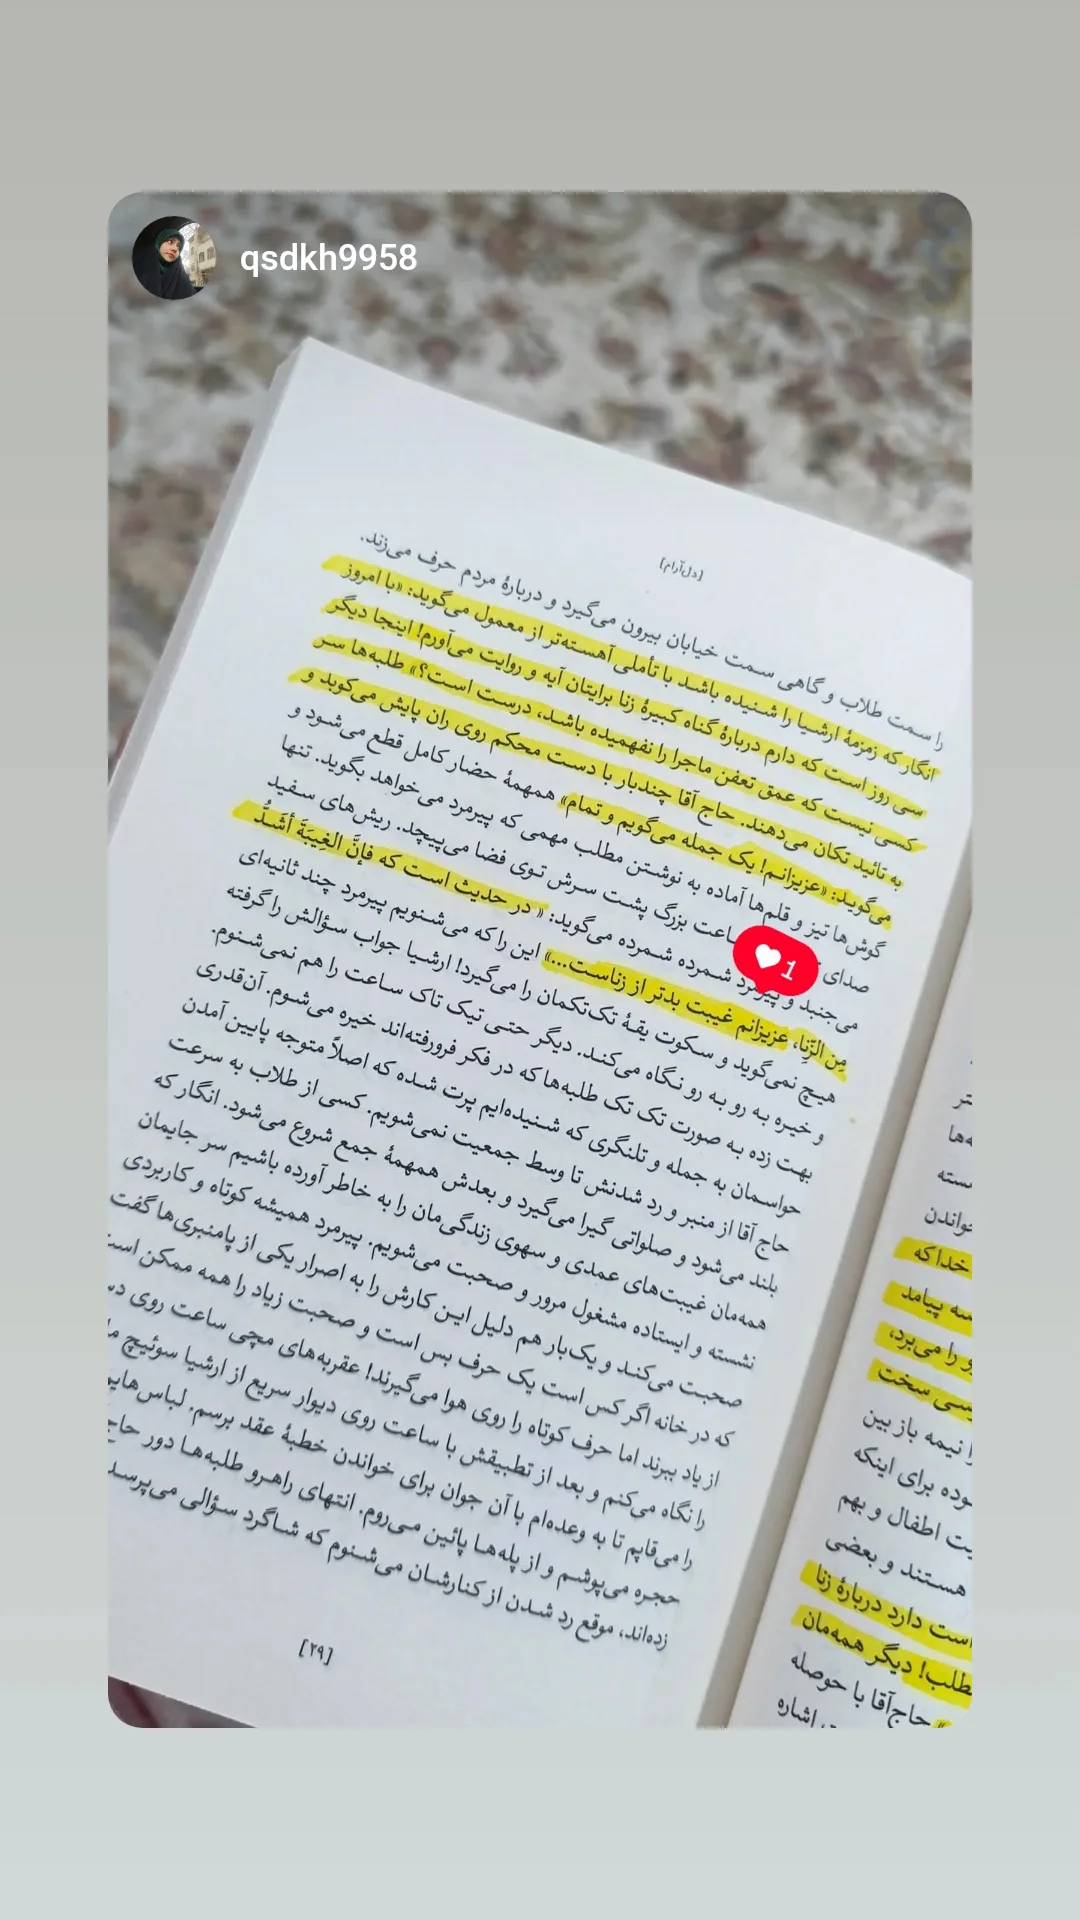 qsdkh9958
[دل‌آرام]
را سمت طلاب و گاهی سمت خیابان بیرون می‌گیرد و دربارهٔ مردم حرف می‌زند.
انگار که زمزمهٔ ارشیا را شنیده باشد با تأملی آهسته‌تر از معمول می‌گوید: «با امروز
سی روز است که دارم دربارهٔ گناه کبیرهٔ زنا برایتان آیه و روایت می‌آورم! اینجا دیگر
کسی نیست که عمق تعفن ماجرا را نفهمیده باشد، درست است؟» طلبه‌ها سر
به تائید تکان می‌دهند. حاج آقا چندبار با دست محکم روی ران پایش می‌کوبد و
می‌گوید: «عزیزانم! یک جمله می‌گویم و تمام» همهمهٔ حضار کامل قطع می‌شود و
گوش‌ها تیز و قلم‌ها آماده به نوشتن مطلب مهمی که پیرمرد می‌خواهد بگوید. تنها
صدای ساعت بزرگ پشت سرش توی فضا می‌پیچد. ریش‌های سفید
می‌جنبد و پیرمرد شمرده شمرده می‌گوید: « در حدیث است که فإنَّ الغِیبَةَ أشَدُّ
مِن الزِّنا، عزیزانم غیبت بدتر از زناست...» این را که می‌شنویم پیرمرد چند ثانیه‌ای
هیچ نمی‌گوید و سکوت یقهٔ تک‌تکمان را می‌گیرد! ارشیا جواب سؤالش را گرفته
و خیره به رو به رو نگاه می‌کند. دیگر حتی تیک تاک ساعت را هم نمی‌شنوم.
بهت زده به صورت تک تک طلبه‌ها که در فکر فرورفته‌اند خیره می‌شوم. آن‌قدری
حواسمان به جمله و تلنگری که شنیده‌ایم پرت شده که اصلاً متوجه پایین آمدن
حاج آقا از منبر و رد شدنش تا وسط جمعیت نمی‌شویم. کسی از طلاب به سرعت
بلند می‌شود و صلواتی گیرا می‌گیرد و بعدش همهمهٔ جمع شروع می‌شود. انگار که
همه‌مان غیبت‌های عمدی و سهوی زندگی‌مان را به خاطر آورده باشیم سر جایمان
نشسته و ایستاده مشغول مرور و صحبت می‌شویم. پیرمرد همیشه کوتاه و کاربردی
صحبت می‌کند و یک‌بار هم دلیل این کارش را به اصرار یکی از پامنبری‌ها گفت
که در خانه اگر کس است یک حرف بس است و صحبت زیاد را همه ممکن است
از یاد ببرند اما حرف کوتاه را روی هوا می‌گیرند! عقربه‌های مچی ساعت روی
را نگاه می‌کنم و بعد از تطبیقش با ساعت روی دیوار سریع از ارشیا سوئیچ
را می‌قاپم تا به وعده‌ام با آن جوان برای خواندن خطبهٔ عقد برسم. لباس‌هایم
حجره می‌پوشم و از پله‌ها پائین می‌روم. انتهای راهرو طلبه‌ها دور حاج
زده‌اند، موقع رد شدن از کنارشان می‌شنوم که شاگرد سؤالی می‌پرسد
[۲۹]
1
خدا که
پیامد
را می‌برد،
سخت
نیمه باز بین
برای اینکه
اطفال و بهم
هستند و بعضی
است دارد دربارهٔ زنا
دیگر همه‌مان
» حاج‌آقا با حوصله
اشاره